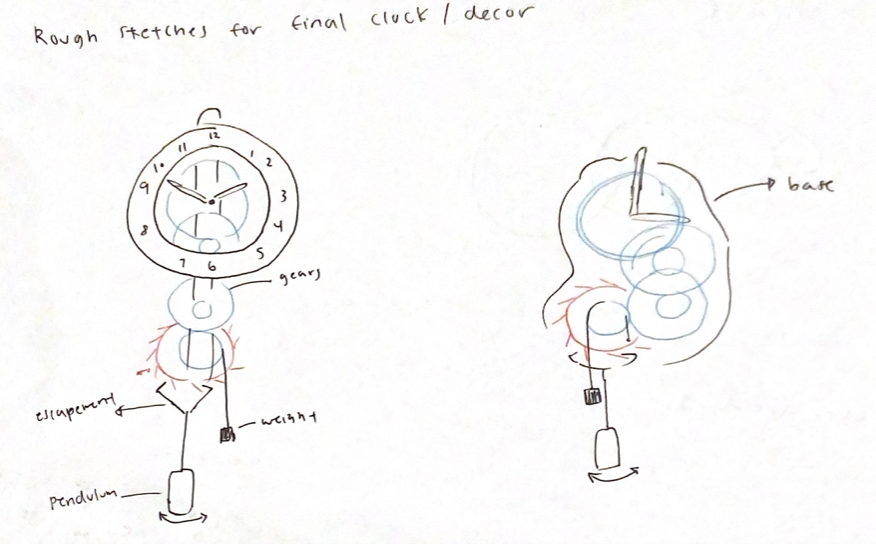 Rough sketches for final clock / decor
12
11
1
10
2
9
3
8
4
7
6
5
gears
base
escapement
weight
pendulum